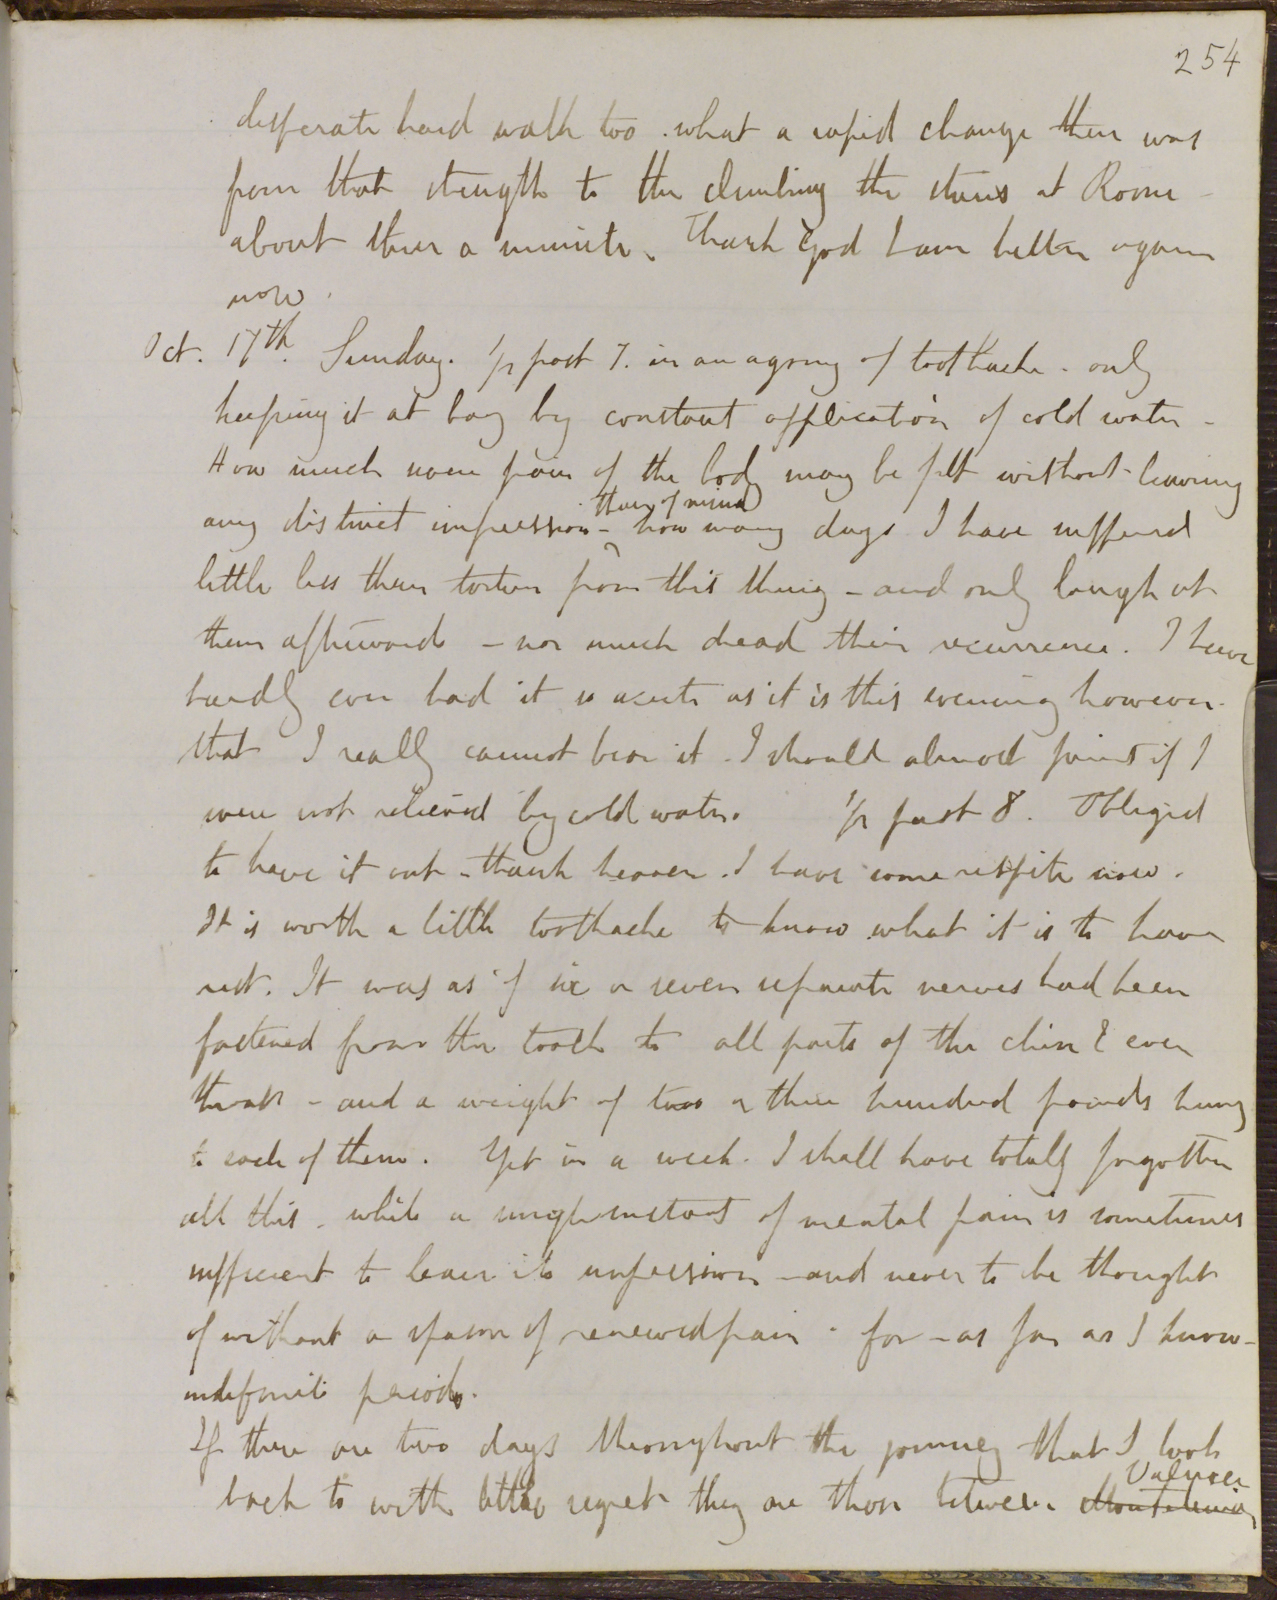 254
desperate hard walk too. what a rapid change there was
from that strength to the climbing the stairs at Rome -
about three a minute. Thank God I am better again
now.
Oct. 17th. Sunday. 1/2 past 7. in an agony of toothache - only
keeping it at bay by constant application of cold water -
How much more pain of the body may be felt without leaving
than of mind
any distinct impression - how many days I have suffered
little less than torture from this thing - and only laugh at
them afterwards - nor much dread their recurrence. I have
hardly ever had it so acute as it is this evening however.
that I really cannot bear it. I should almost faint if I
were not relieved by cold water. 1/2 past 8. Obliged
to have it out - thank heaven. I have some respite now.
It is worth a little toothache to know what it is to have
rest. It was as if six or seven separate nerves had been
fastened from the tooth to all parts of the chin & even
throat - and a weight of two or three hundred pounds hung
to each of them. Yet in a week. I shall have totally forgotten
all this. while a single instant of mental pain is sometimes
sufficient to leave its impression - and never to be thought
of without a spasm of renewed pain - for - as far as I know -
indefinite periods.
If there are two days throughout the journey that I look
Valence
back to with little regret they are those between Montelimar